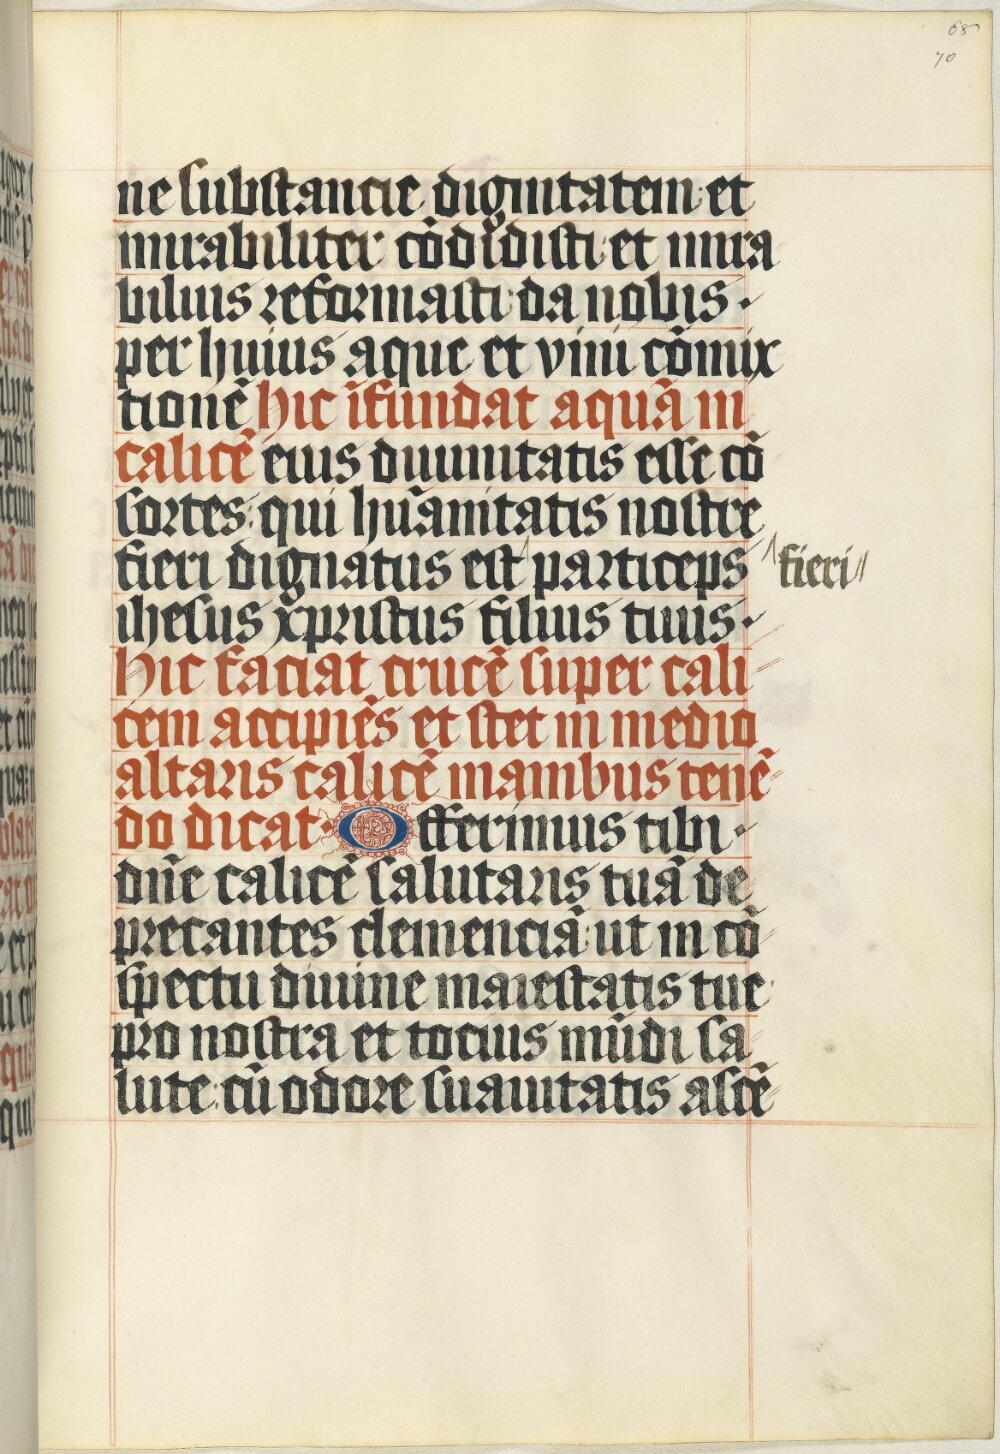 68
70
ne substancie dignitatem: et
mirabiliter cōdidisti: et mira
bilius reformasti: da nobis·
per huius aque et vini cōmix
tionē Hic īfundat aquā in
calicē eius diuinitatis esse cō
sortes: qui hūanitatis nostre
fieri dignatus est particeps fieri
ihesus xp̄ristus filius tuus·
Hic faciat crucē super cali
cem accipiēs et stet in medio
altaris calicē manibus tenē
do dicat· Offerimus tibi·
dn̄e calicē salutaris tuā de
precantes clemenciā: ut in cō
spectu diuine maiestatis tue
pro nostra et tocius mūdi sa
lute: cū odore suauitatis ascē